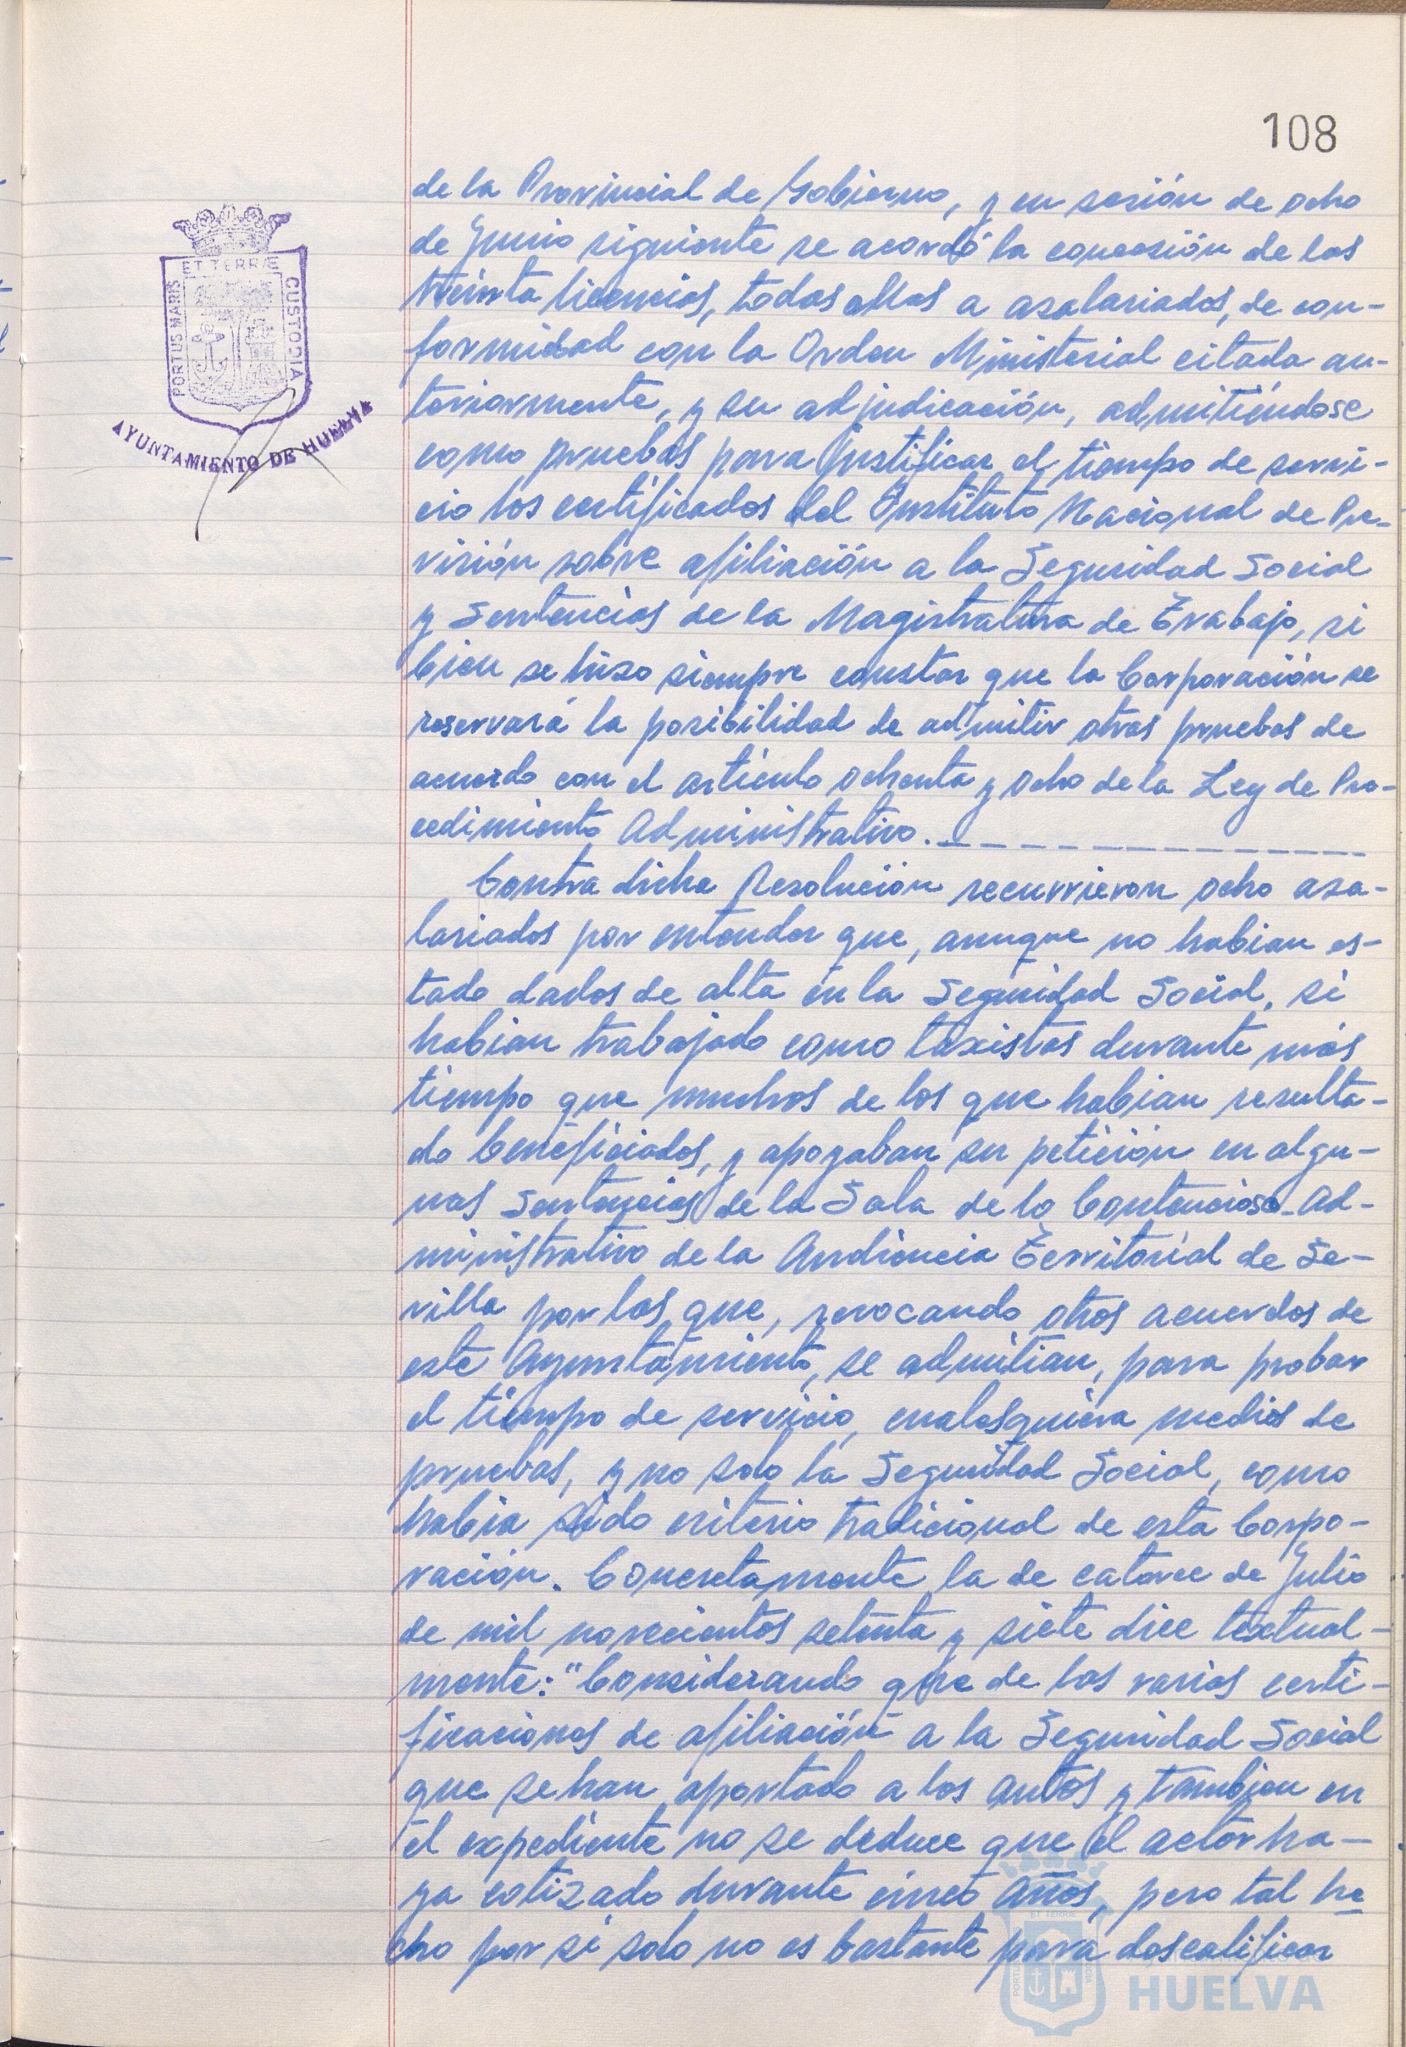 108
de la Provincial de Gobierno, y en sesión de ocho
de Junio siguiente se acordó la concesión de las
treinta licencias, todas ellas a asalariados, de con-
formidad con la Orden Ministerial citada an-
teriormente, y su adjudicación, admitiéndose
como pruebas para justificar el tiempo de servi-
cio los certificados del Instituto Nacional de Pre-
visión sobre afiliación a la Seguridad Social
y Sentencias de la Magistratura de Trabajo, si
bien se hizo siempre constar que la Corporación se
reservará la posibilidad de admitir otras pruebas de
acuerdo con el artículo ochenta y ocho de la Ley de Pro-
cedimiento Administrativo.
Contra dicha Resolución recurrieron ocho asa-
lariados por entender que, aunque no habian es-
tado dados de alta en la Seguridad Social, si
habian trabajado como taxistas durante más
tiempo que muchos de los que habian resulta-
do beneficiados, y apoyaban su petición en algu-
nas Sentencias de la Sala de lo Contencioso-Ad-
ministrativo de la Audiencia Territorial de Se-
villa por las que, revocando otros acuerdos de
este Ayuntamiento, se admitian, para probar
el tiempo de servicio, cualesquiera medios de
pruebas, y no solo la Seguridad Social, como
habia sido criterio tradicional de esta Corpo-
ración. Concretamente la de catorce de Julio
de mil novecientos setenta y siete dice textual-
mente: "Considerando que de las varias certi-
ficaciones de afiliación a la Seguridad Social
que se han aportado a los autos y tambien en
el expediente no se deduce que el actor ha-
ya cotizado durante cinco años, pero tal he-
cho por si solo no es bastante para descalificar
ET TERRÆ
PORTUS MARIS
CUSTODIA
AYUNTAMIENTO DE HUELVA
HUELVA